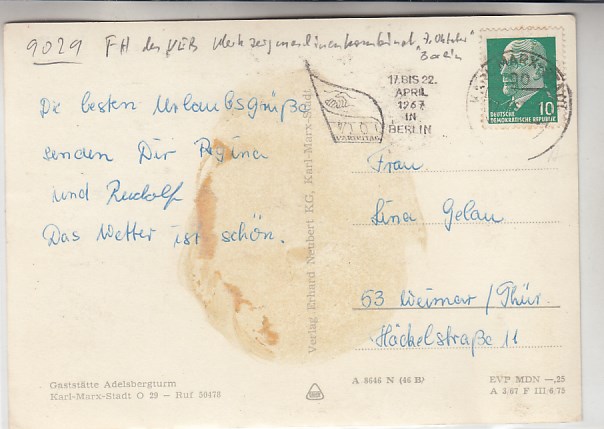 9029 FH des VEB Werkzeugmaschinenkombinat "7. Oktober"
Berlin
17. BIS 22.
APRIL
1967
IN
BERLIN
VII
PARTEITAG
KARL-MARX-STADT
10
DEUTSCHE
DEMOKRATISCHE REPUBLIK
Die besten Urlaubsgrüße
senden Dir Regina
und Rudolf
Das Wetter ist schön.
Verlag Erhard Neubert KG, Karl-Marx-Stadt
Frau
Lina Gelau
53 Weimar/Thür.
Häckelstraße 11
Gaststätte Adelsbergturm
Karl-Marx-Stadt O 29 — Ruf 50478
A 8646 N (46 B)
EVP MDN —,25
A 3/67 F III 6/75